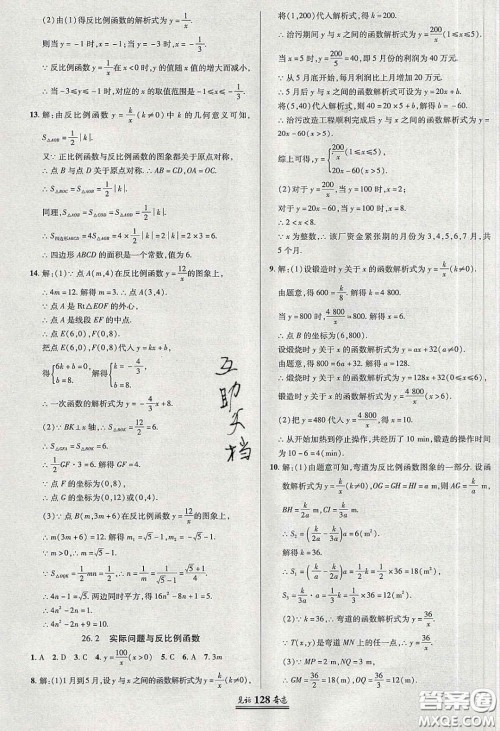 (2)由(1)得反比例函数的解析式为y=3/x.
则当x=-3时,y=-1;当y=-3时,x=-1.
∵反比例函数y=3/x在x<0时,y的值随x的值增大而减小,
∴当-3≤y≤-1时,x的取值范围为-3≤x≤-1.
13.解:由反比例函数y=k/x(k≠0)中k的几何意义可知,
S△AOB=1/2|k|.
又∵正比例函数与反比例函数的图象都关于原点对称,
∴点B与点D关于原点对称.∴AB=CD,OA=OC.
∴S△BOC=S△AOB=1/2|k|.
同理,S△COD=S△AOD=1/2|k|.
∴S四边形ABCD=4S△AOB=4×1/2|k|=2×3=6.
∴四边形ABCD的面积是一个常数,常数值为6.
14.解:(1)∵点A(m,4)在反比例函数y=12/x的图象上,
∴4m=12.解得m=3.∴点A(3,4).
∵点A是Rt△EOF的外心,
∴点A是线段EF的中点.
∴点E(6,0),F(0,8).
把点E(6,0),F(0,8)代入y=kx+b,
得{6k+b=0,b=8.解得{k=-4/3,b=8.
∴一次函数的解析式为y=-4/3x+8.
(2)∵BK⊥x轴,
∴S△BOK=1/2×12=6.
∴1/2GF·3=6.
∴GF=4.
∵点F的坐标为(0,8),
∴点G的坐标为(0,4).
(3)∵点B(m,3m+6)在反比例函数y=12/x的图象上,
∴m(3m+6)=12.∴m=√5-1.
∴n=1/(√5-1)=(√5+1)/4.
∴4n=√5+1.
∴4n-1=√5.两边同时平方,得
16n²-8n+1=5.∴16n²-8n+5=9.
26.2 实际问题与反比例函数
1.A 2.D 3.C 4.y=100/x(x>0) 5.C 6.A 7.3m
8.解:(1)1月到5月,设y与x之间的函数解析式为y=k/x(k≠0),
将(1,200)代入解析式,得k=200.
∴治污期间y与x之间的函数解析式为y=200/x(1≤x≤5).
∴当x=5时,y=200/5=40,即5月份的利润为40万元.
∵从5月开始,每月利润比上月增加20万元,
∴设y与x之间的函数解析式为y=20x+b.
将(5,40)代入解析式,得b=-60.
∴治污改造工程顺利完成后y与x之间的函数解析式为y=20x-60(x>5).
综上可得,y={200/x(1≤x≤5),20x-60(x>5).
(2)对于y=200/x,当y=100时,x=2,
对于y=20x-60,当y=100时,x=8,
∴2<x<8.
∵x为整数,∴该厂资金紧张期的月份为3,4,5,6,7月,共5个月.
9.解:(1)设锻造时y关于x的函数解析式为y=k/x(k≠0),
由题意,得600=k/8.解得k=4 800.
当y=800时,4 800/x=800,解得x=6.
∴点B的坐标为(6,800).
设煅烧时y关于x的函数解析式为y=ax+32(a≠0).
由题意,得6a+32=800.解得a=128.
∴煅烧时y关于x的函数解析式为y=128x+32(0≤x≤6),
锻造时y关于x的函数解析式为y=4 800/x(x>6).
(2)把y=480代入y=4 800/x,得x=10.
∴从开始加热到停止操作,共经历了10 min,锻造的操作时间为10-6=4(min).
10.解:(1)由题意可知,弯道为反比例函数图象的一部分.设函数解析式为y=k/x(k≠0),OG=GH=HI=a m,则AG=k/a m,
BH=k/2a m,CI=k/3a m.
∴S₂=(k/2a-k/3a)·a=6.
解得k=36.
∴S₁=(k/a-k/2a)·a=1/2k=1/2×36=18(m²),
S₃=k/3a·a=1/3k=1/3×36=12(m²).
(2)∵k=36,∴弯道的函数解析式为y=36/x.
(3)∵MP=2 m,NQ=3 m,
∴GM=36/2=18(m),
见精 128 奋进
互助文档
答案圈
MXQE.COM